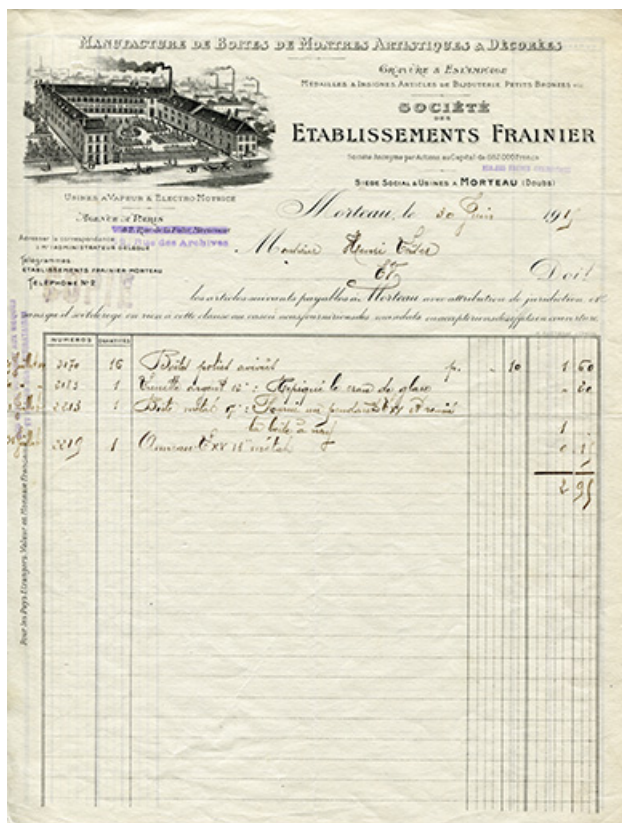 MANUFACTURE DE BOITES DE MONTRES ARTISTIQUES & DÉCORÉES
GRAVURE & ESTAMPAGE
MÉDAILLES & INSIGNES ARTICLES DE BIJOUTERIE PETITS BRONZES etc.
SOCIÉTÉ
DES
ETABLISSEMENTS FRAINIER
Société Anonyme par Actions au Capital de
SIÈGE SOCIAL & USINES A MORTEAU (DOUBS)
USINES A VAPEUR & ELECTRO MOTRICE
AGENCE DE PARIS
Rue des Archives
Adresser la correspondance
à Mr l'ADMINISTRATEUR DÉLÉGUÉ
Télégrammes
ETABLISSEMENTS FRAINIER MORTEAU
TÉLÉPHONE No 2
Morteau, le 30 Juin 1915
Monsieur Henri
Doit
les articles suivants payables à Morteau avec attribution de juridiction, et
sans qu'il soit dérogé en rien à cette clause au cas où nous fournirions des mandats ou accepterions des effets en couverture.
NUMÉROS QUANTITÉS
2170 16 Boites polies avivées p. - 10 1 60
1 argent 12''' : Repiqué le cran de glace - 20
2213 1 Boite métal : Fourni un pendant
la boite à neuf 1
2219 1 Anneau métal 0 15
2 95
Pour les Pays Etrangers, Valeur en Monnaie Française